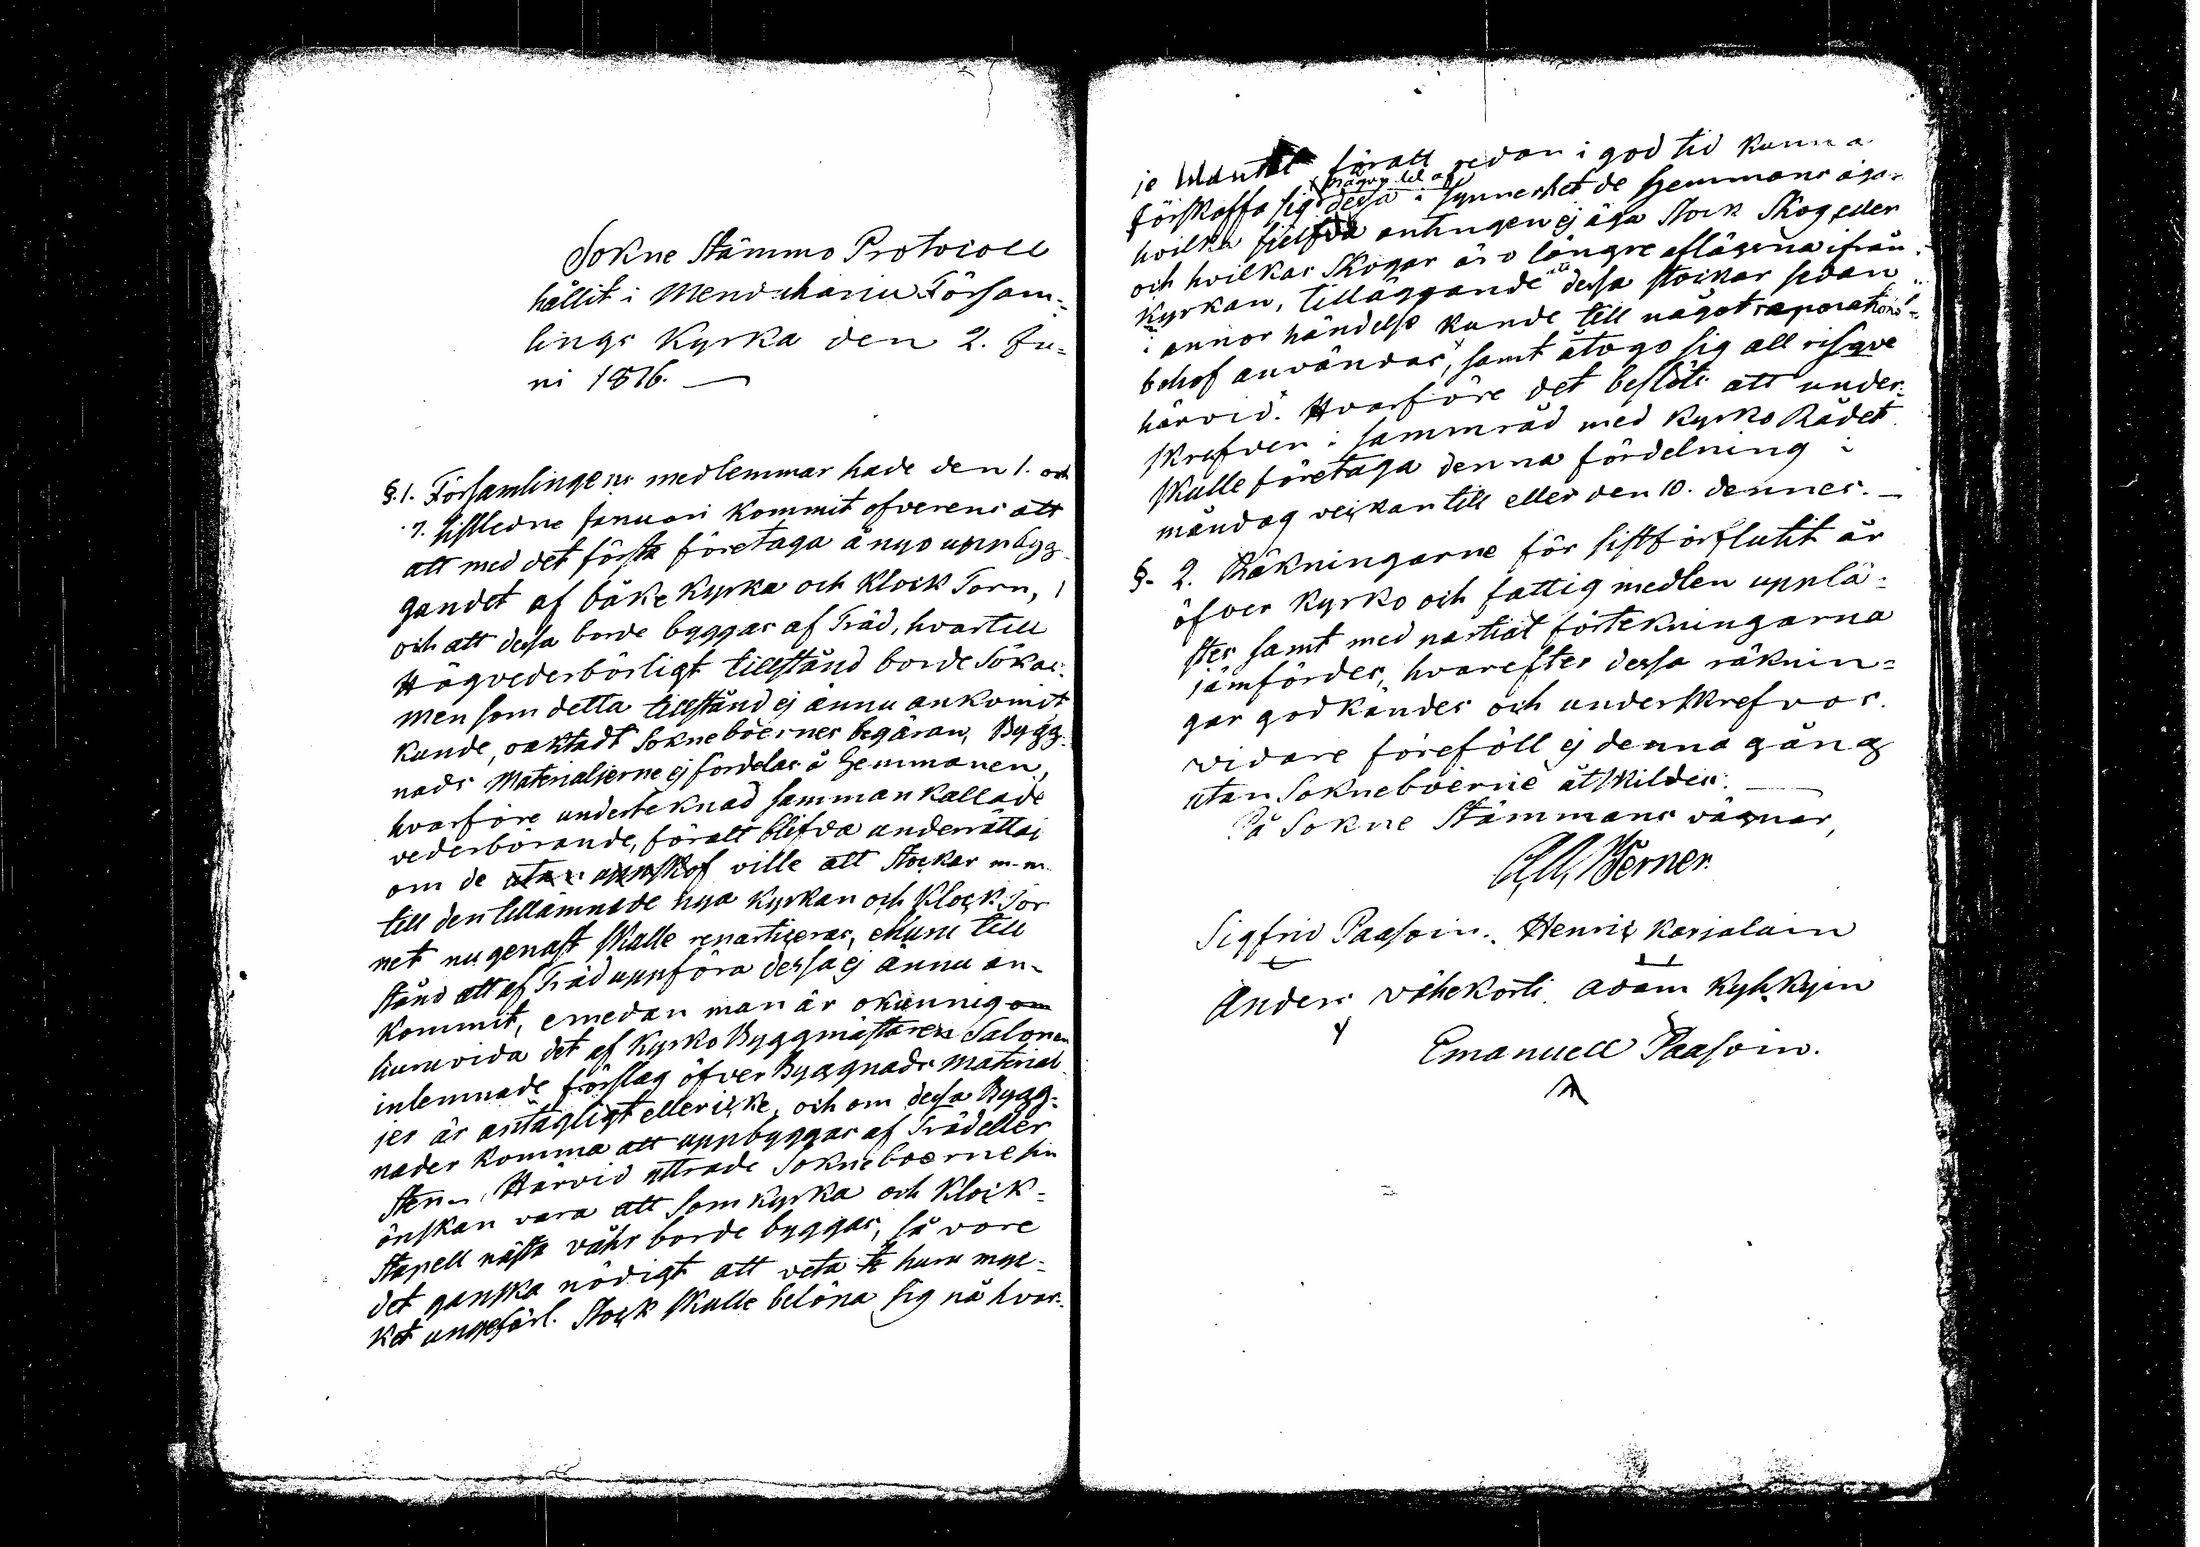 Sokne Stämmo Protocoll
hållit i Mendüharju Försam=
lings Kyrka den 2. Ju=
ni 1816. —
§.1. Församlingens medlemmar hade den 1. och
7. sistledne Januari kommit öfverens att
att med det första företaga å nyo uppbygg-
gandet af både Kyrka och Klock Torn,
och att dessa borde byggas af Träd, hvartill
Högvederbörligt tillstånd borde sökas:
men som detta tillstånd ej ännu ankommit
kunde, oaktadt Sokneboernes begäran, Bygg-
nads Materialierne ej fördelas å Hemmanen,
hvarföre undertecknad samman kallade
vederbörande, för att blifva underrättad
om de utan uppskof ville att Stockar m.m.
till den tillämnade nya Kyrkan och Klock Tor
net nu genast skulle repartiseras, ehuru till
stånd att af Träd uppföra dessa ej ännu an-
kommit, emedan man är okunnig om
huruvida det af Kyrko Byggmästaren Salonen
inlemnade förslag öfver Byggnads material
jer är antagligt eller icke, och om dessa Bygg-
nader komma att uppbyggas af Träd eller
Sten. Härvid yttrade Sokneboerne sin
önskan vara att som Kyrka och Klock=
Stapell nästa våhr borde byggas, så vore
det ganska nödigt att veta huru myc=
ket ungefärl. Stock skulle belöpa sig på hvar-
je Mantal för att redan i god tid kunna
förskaffa sig dessa i synnerhet de Hemmans ägar
hvilka sjelfva antingen ej äga Stock Skog eller
och hvilkas Skogar äro längre aflägsna ifrån
Kyrkan, tilläggande att dessa stockar sedan
i annor händelse kunde till något reparations=
behof användas, samt åtogo sig all risqve
härvid. Hvarföre det beslöts att under=
skrefven i sammråd med Kyrko Rådet
skulle företaga denna fördelning i
måndag veckan till eller den 10. dennes. —
§. 2. Räkningarne för sistförflutit år
öfver Kyrko och fattig medlen upplä=
stes samt med partial förtekningarna
jämfördes, hvarefter dessa räknin=
gar godkändes och underskrefvos.
vidare föreföll ej denna gång
utan Sokneboerne åtskildes. —
På Sokne Stämmans vägnar,
Werner.
Sigfrid Paasoin. Henric Karjalain
Anders Vähekorti. Adam Kyhkyin
Emanuell Paasoin.